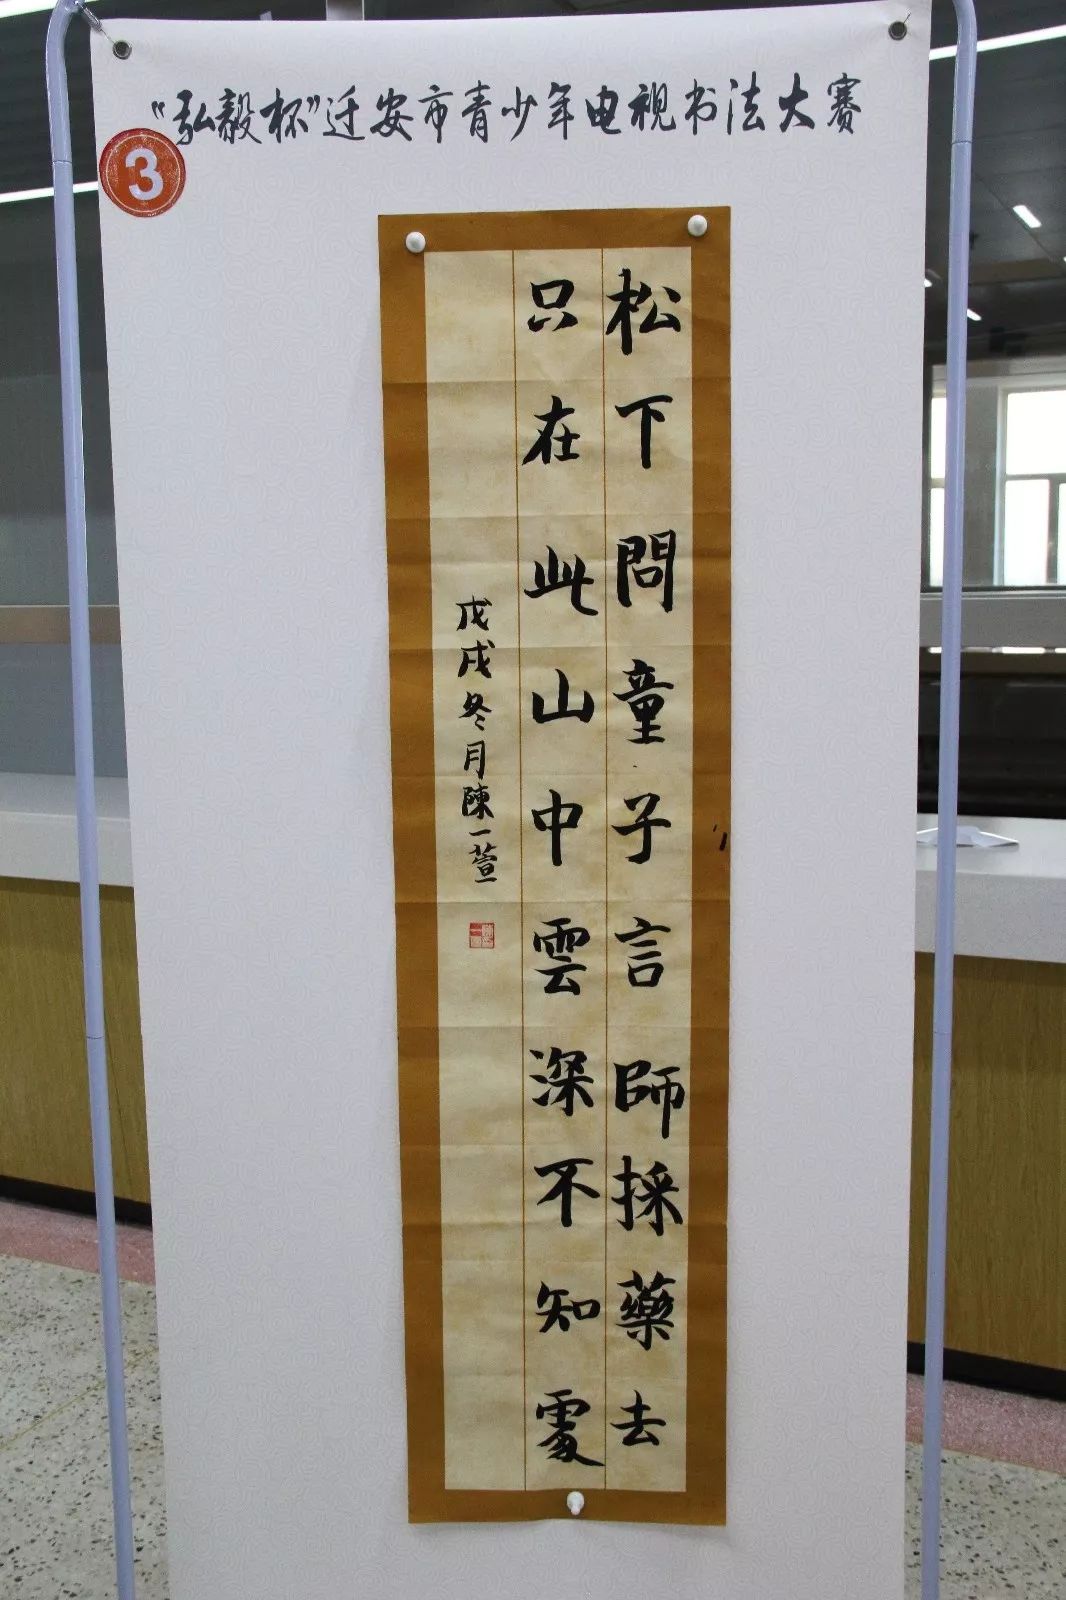 “弘毅杯”迁安市青少年电视书法大赛
3
松下問童子言師採藥去
只在此山中雲深不知處
戊戌冬月陳一萱